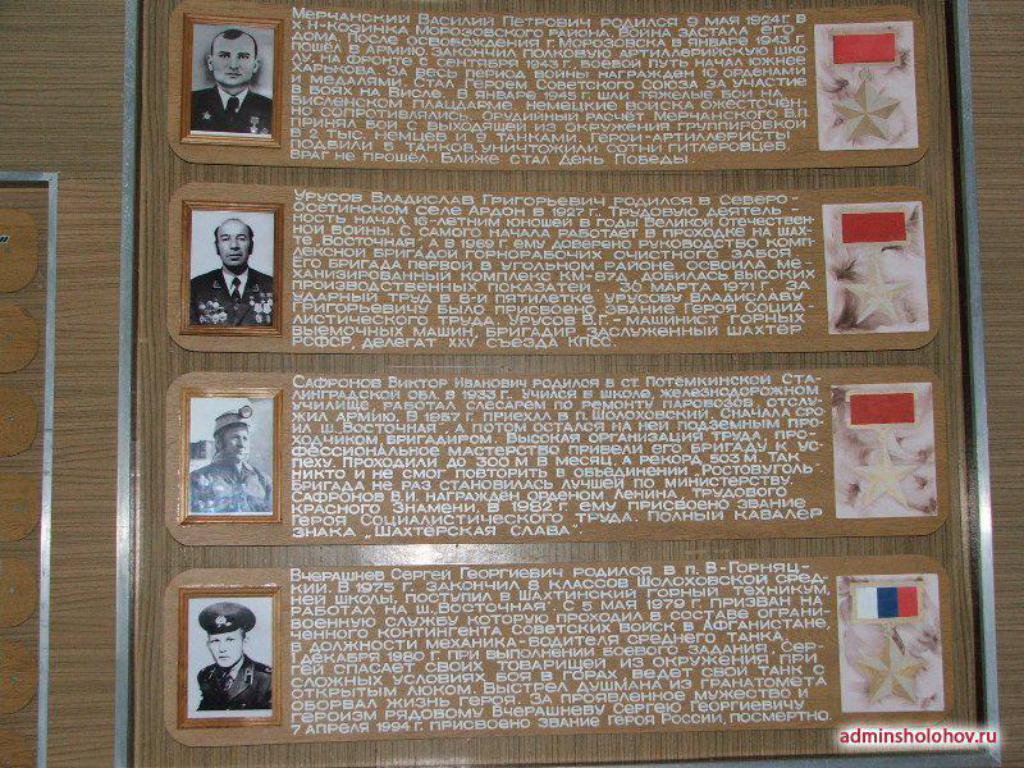 Мерчанский Василий Петрович родился 9 мая 1924г. в
х. Н-Козинка Морозовского района. Война застала его
дома. После освобождения г. Морозовска в январе 1943 г.
пошёл в армию. Закончил полковую артиллерийскую шко-
лу. На фронте с сентября 1943 г. Боевой путь начал южнее
Харькова. За весь период войны награждён 10 орденами
и медалями. Стал Героем Советского Союза за участие
в боях на Висле. В январе 1945 г. шли тяжёлые бои на
Висленском плацдарме. Немецкие войска ожесточён-
но сопротивлялись. Орудийный расчёт Мерчанского В.П.
принял бой с выходящей из окружения группировкой
в 2 тыс. немцев и 9 танками. Герои-артиллеристы
подбили 5 танков, уничтожили сотни гитлеровцев.
Враг не прошёл. Ближе стал День Победы.
Урусов Владислав Григорьевич родился в Северо-
Осетинском селе Ардон в 1927 г. Трудовую деятель-
ность начал 16-летним юношей в годы Великой Отечествен-
ной Войны. С самого начала работает в проходке на шах-
те „Восточная", а в 1969 г. ему доверено руководство комп-
лексной бригадой горнорабочих очистного забоя.
Его бригада первой в угольном районе освоила ме-
ханизированный комплекс КМ-87, добилась высоких
производственных показателей. 30 марта 1971 г. за
ударный труд в 8-й пятилетке Урусову Владиславу
Григорьевичу было присвоено звание Героя Социа-
листического Труда. Урусов В.Г.- машинист горных
выемочных машин, бригадир, заслуженный шахтёр
РСФСР, делегат XXV съезда КПСС.
Сафронов Виктор Иванович родился в ст. Потёмкинской Ста-
линградской обл. в 1933 г. Учился в школе, железнодорожном
училище, работал слесарем по ремонту паровозов, отслу-
жил армию. В 1957 г. приехал в п. Шолоховский. Сначала стро-
ил ш. „Восточная", а потом остался на ней подземным про-
ходчиком, бригадиром. Высокая организация труда, про-
фессиональное мастерство привели его бригаду к ус-
пеху. Проходили до 300 м в месяц, а рекорд 803 м так
никто и не смог повторить в объединении „Ростовуголь".
Бригада не раз становилась лучшей по министерству.
Сафронов В.И. награждён орденом Ленина, Трудового
Красного Знамени. В 1982 г. ему присвоено звание
Героя Социалистического Труда. Полный кавалер
знака „Шахтёрская Слава".
Вчерашнев Сергей Георгиевич родился в п. В-Горняц-
кий. В 1975 г. закончил 8 классов Шолоховской сред-
ней школы, поступил в Шахтинский горный техникум,
работал на ш. „Восточная". С 5 мая 1979 г. призван на
военную службу которую проходил в составе ограни-
ченного контингента Советских войск в Афганистане,
в должности механика-водителя среднего танка.
1 декабря 1980 г. при выполнении боевого задания, Сер-
гей спасает своих товарищей из окружения. При
сложных условиях боя в горах, ведёт свой танк с
открытым люком. Выстрел душмана из гранатомёта
оборвал жизнь героя. За проявленное мужество и
героизм рядовому Вчерашневу Сергею Георгиевичу
7 апреля 1994 г. присвоено звание Героя России, посмертно.
adminsholohov.ru